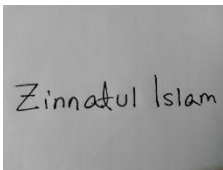 Zinnatul Islam